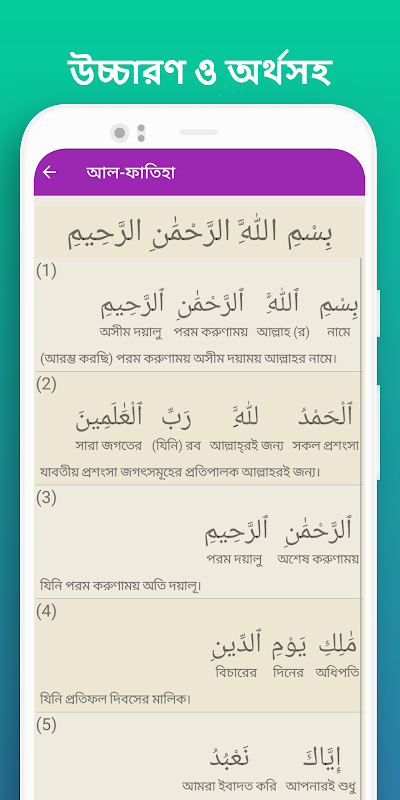 উচ্চারণ ও অর্থসহ
আল-ফাতিহা
بِسْمِ اللَّهِ الرَّحْمَٰنِ الرَّحِيمِ
(1)
بِسْمِ ٱللَّهِ ٱلرَّحْمَٰنِ ٱلرَّحِيمِ
অসীম দয়ালু পরম করুণাময় আল্লাহ (র) নামে
(আরম্ভ করছি) পরম করুণাময় অসীম দয়াময় আল্লাহর নামে।
(2)
ٱلْحَمْدُ لِلَّهِ رَبِّ ٱلْعَٰلَمِينَ
সারা জগতের (যিনি) রব আল্লাহ্‌রই জন্য সকল প্রশংসা
যাবতীয় প্রশংসা জগৎসমূহের প্রতিপালক আল্লাহরই জন্য।
(3)
ٱلرَّحْمَٰنِ ٱلرَّحِيمِ
পরম দয়ালু অশেষ করুণাময়
যিনি পরম করুণাময় অতি দয়ালূ।
(4)
مَٰلِكِ يَوْمِ ٱلدِّينِ
বিচারের দিনের অধিপতি
যিনি প্রতিফল দিবসের মালিক।
(5)
إِيَّاكَ نَعْبُدُ
আমরা ইবাদত করি আপনারই শুধু